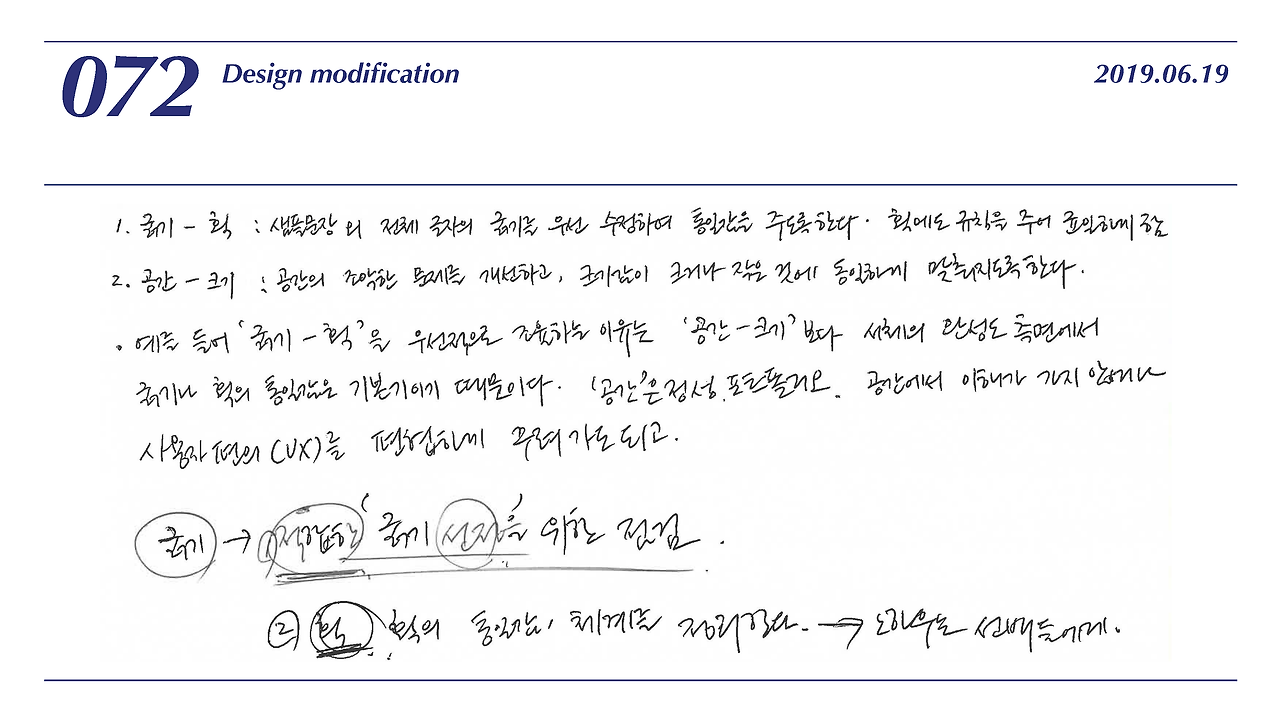 072
Design modification
2019.06.19
1. 굵기 - 획 : 샘플문장의 전체 글자의 굵기를 우선 수정하여 통일감을 주도록 한다. 획에도 규칙을 주어 균일하게 함
2. 공간 - 크기 : 공간의 조악한 문제를 개선하고, 크기감이 크거나 작은 것에 동일하게 맞춰지도록 한다.
. 예를 들어 '굵기 - 획'을 우선적으로 조율하는 이유는 '공간 - 크기' 보다 서체의 완성도 측면에서
굵기나 획의 통일감은 기본기이기 때문이다. '공간'은 정성, 포트폴리오. 공간에서 이해가 가지 않거나
사용자 편의 (UX)를 편협하게 가도 되고.
굵기 → 1) 적합한 '굵기 선정'을 위한 점검.
2) 획 획의 통일감, 체계를 정리한다. → 노하우는 선배들에게.